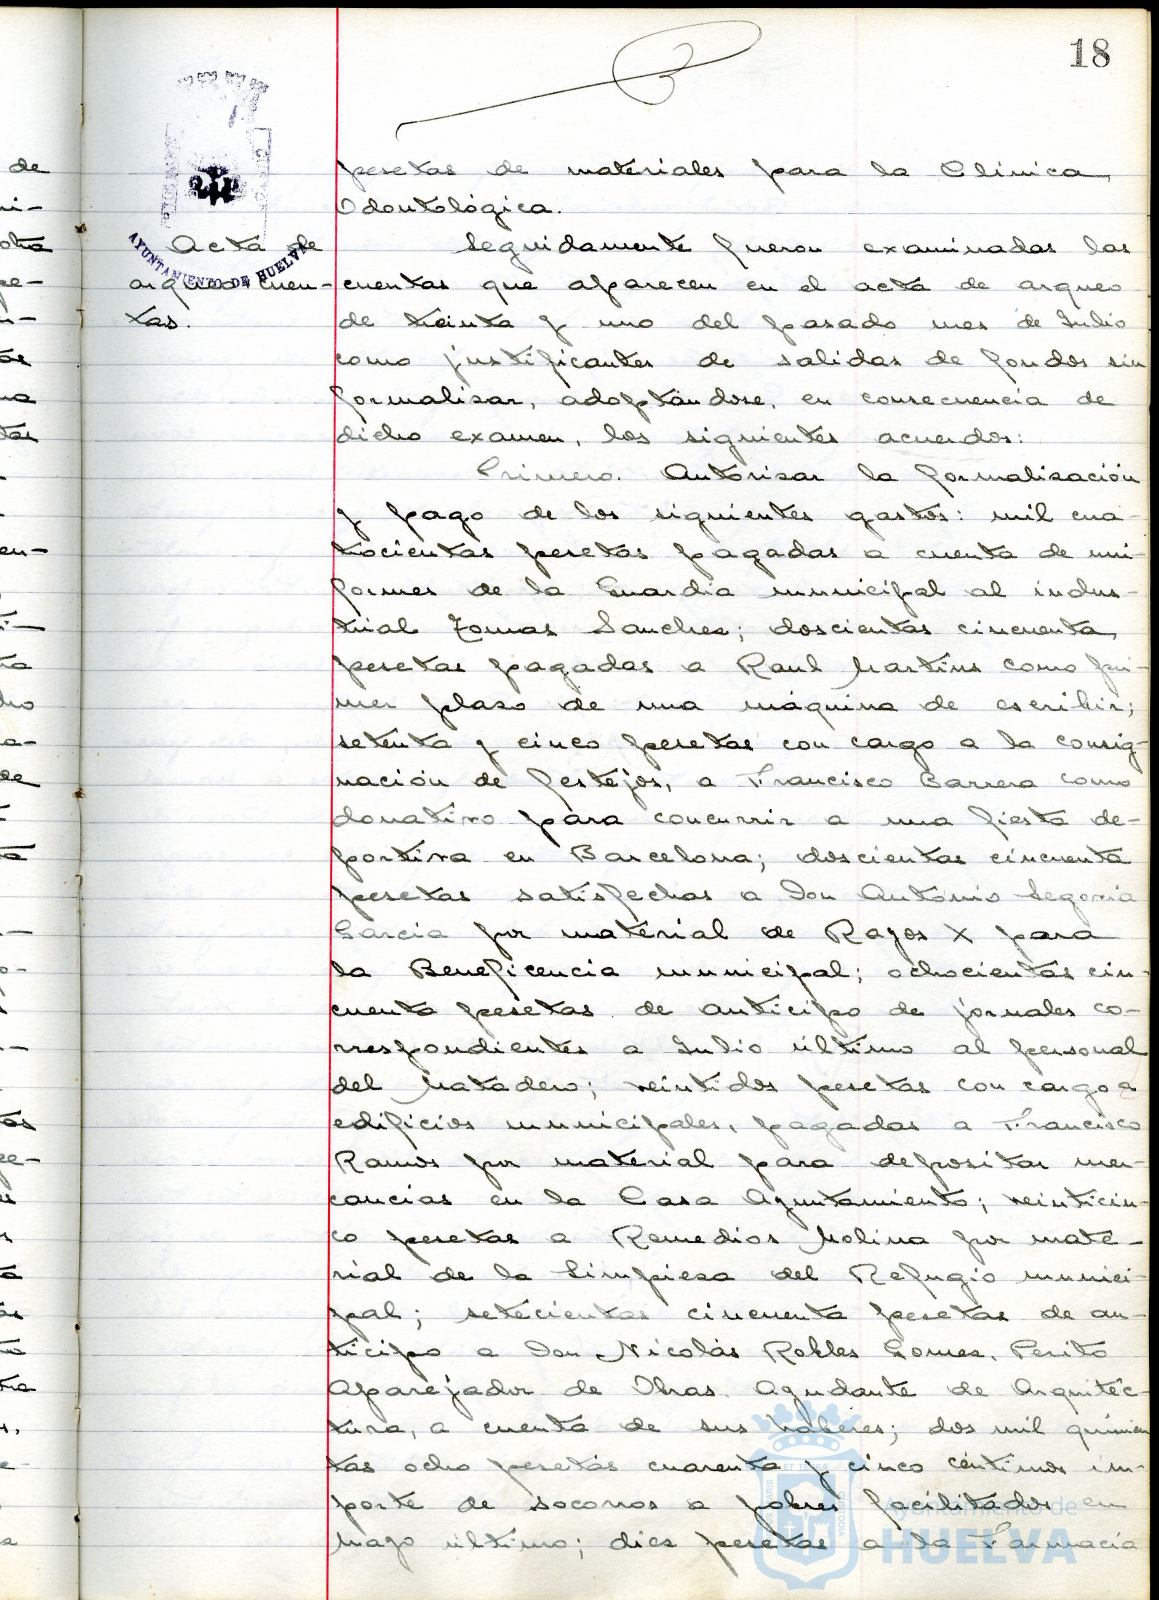 18
pesetas de materiales para la Clinica
Odontológica.
Acta de
arqueo cuen-
tas.
AYUNTAMIENTO DE HUELVA
Seguidamente fueron examinadas las
cuentas que aparecen en el acta de arqueo
de treinta y uno del pasado mes de Julio
como justificantes de salidas de fondos sin
formalizar, adoptándose, en consecuencia de
dicho examen, los siguientes acuerdos:
Primero. Autorizar la formalización
y pago de los siguientes gastos: mil cua-
trocientas pesetas pagadas a cuenta de uni-
formes de la Guardia municipal al indus-
trial Tomas Sanchez; doscientas cincuenta
pesetas pagadas a Raul Martins como pri-
mer plazo de una máquina de escribir;
setenta y cinco pesetas con cargo a la consig-
nación de festejos, a Francisco Barrera como
donativo para concurrir a una fiesta de-
portiva en Barcelona; doscientas cincuenta
pesetas satisfechas a Don Antonio Segovia
Garcia por material de Rayos X para
la Beneficencia municipal; ochocientas cin-
cuenta pesetas de anticipo de jornales co-
rrespondientes a Julio último al personal
del Matadero; veintidos pesetas con cargo a
edificios municipales, pagadas a Francisco
Ramos por material para depositar mer-
cancias en la Casa Ayuntamiento; veinticin-
co pesetas a Remedios Molina por mate-
rial de la limpieza del Refugio munici-
pal; setecientas cincuenta pesetas de an-
ticipo a Don Nicolás Robles Gomez, Perito
Aparejador de Obras, Ayudante de Arquitec-
tura, a cuenta de sus haberes; dos mil quinien
tas ocho pesetas cuarenta y cinco céntimos im-
porte de socorros a pobres facilitados en
Mayo último; diez pesetas a la Farmacia
Ayuntamiento de
HUELVA